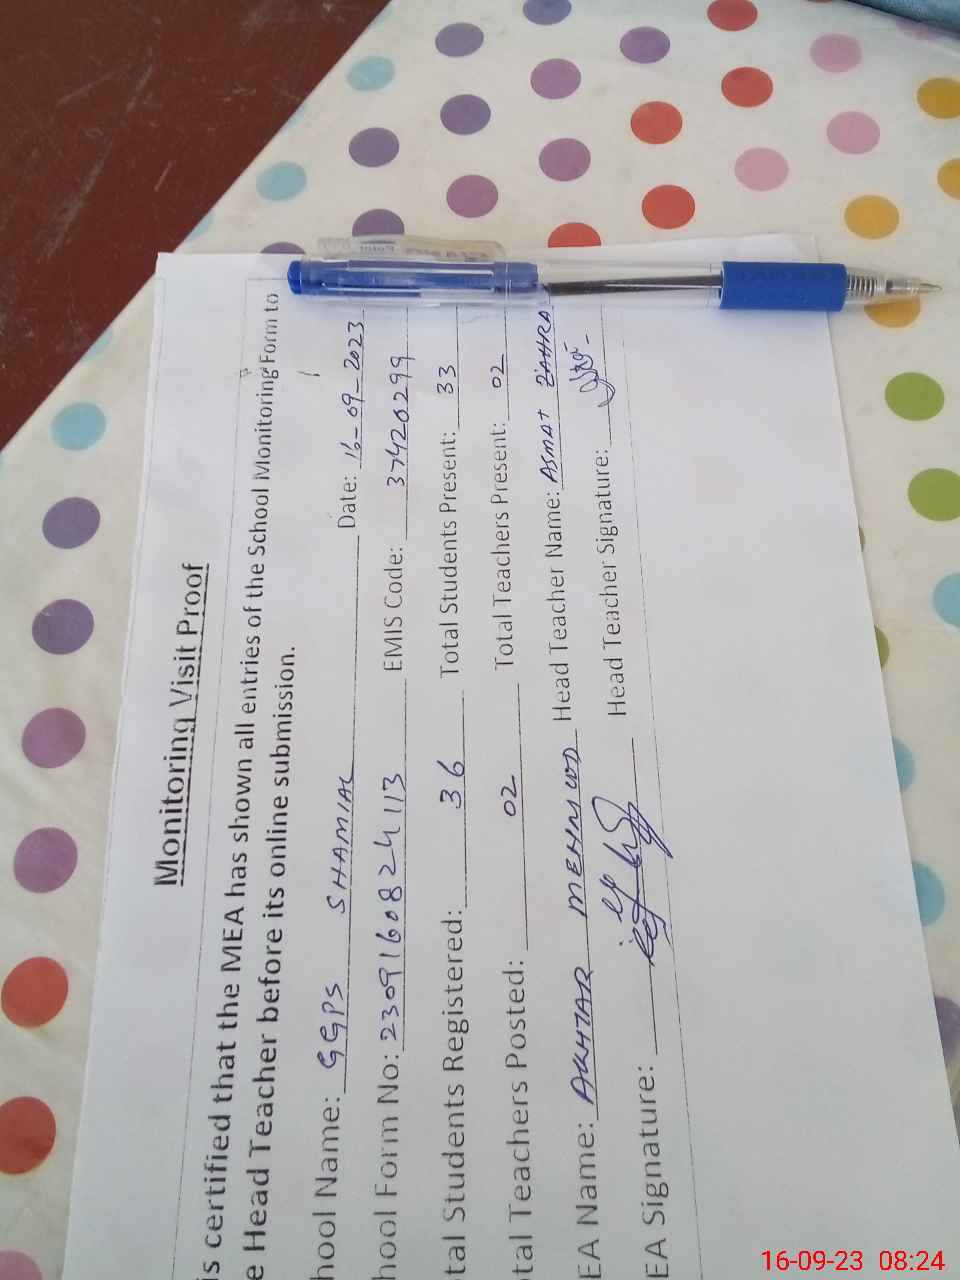 Monitoring Visit Proof
is certified that the MEA has shown all entries of the School Monitoring Form to
e Head Teacher before its online submission.
hool Name: GGPS SHAMIAL Date: 16-09-2023
hool Form No: 2309160824113 EMIS Code: 37420299
tal Students Registered: 36 Total Students Present: 33
tal Teachers Posted: 02 Total Teachers Present: 02
EA Name: AKHTAR MEHMOOD Head Teacher Name: ASMAT ZAHRA
EA Signature: Head Teacher Signature:
16-09-23 08:24